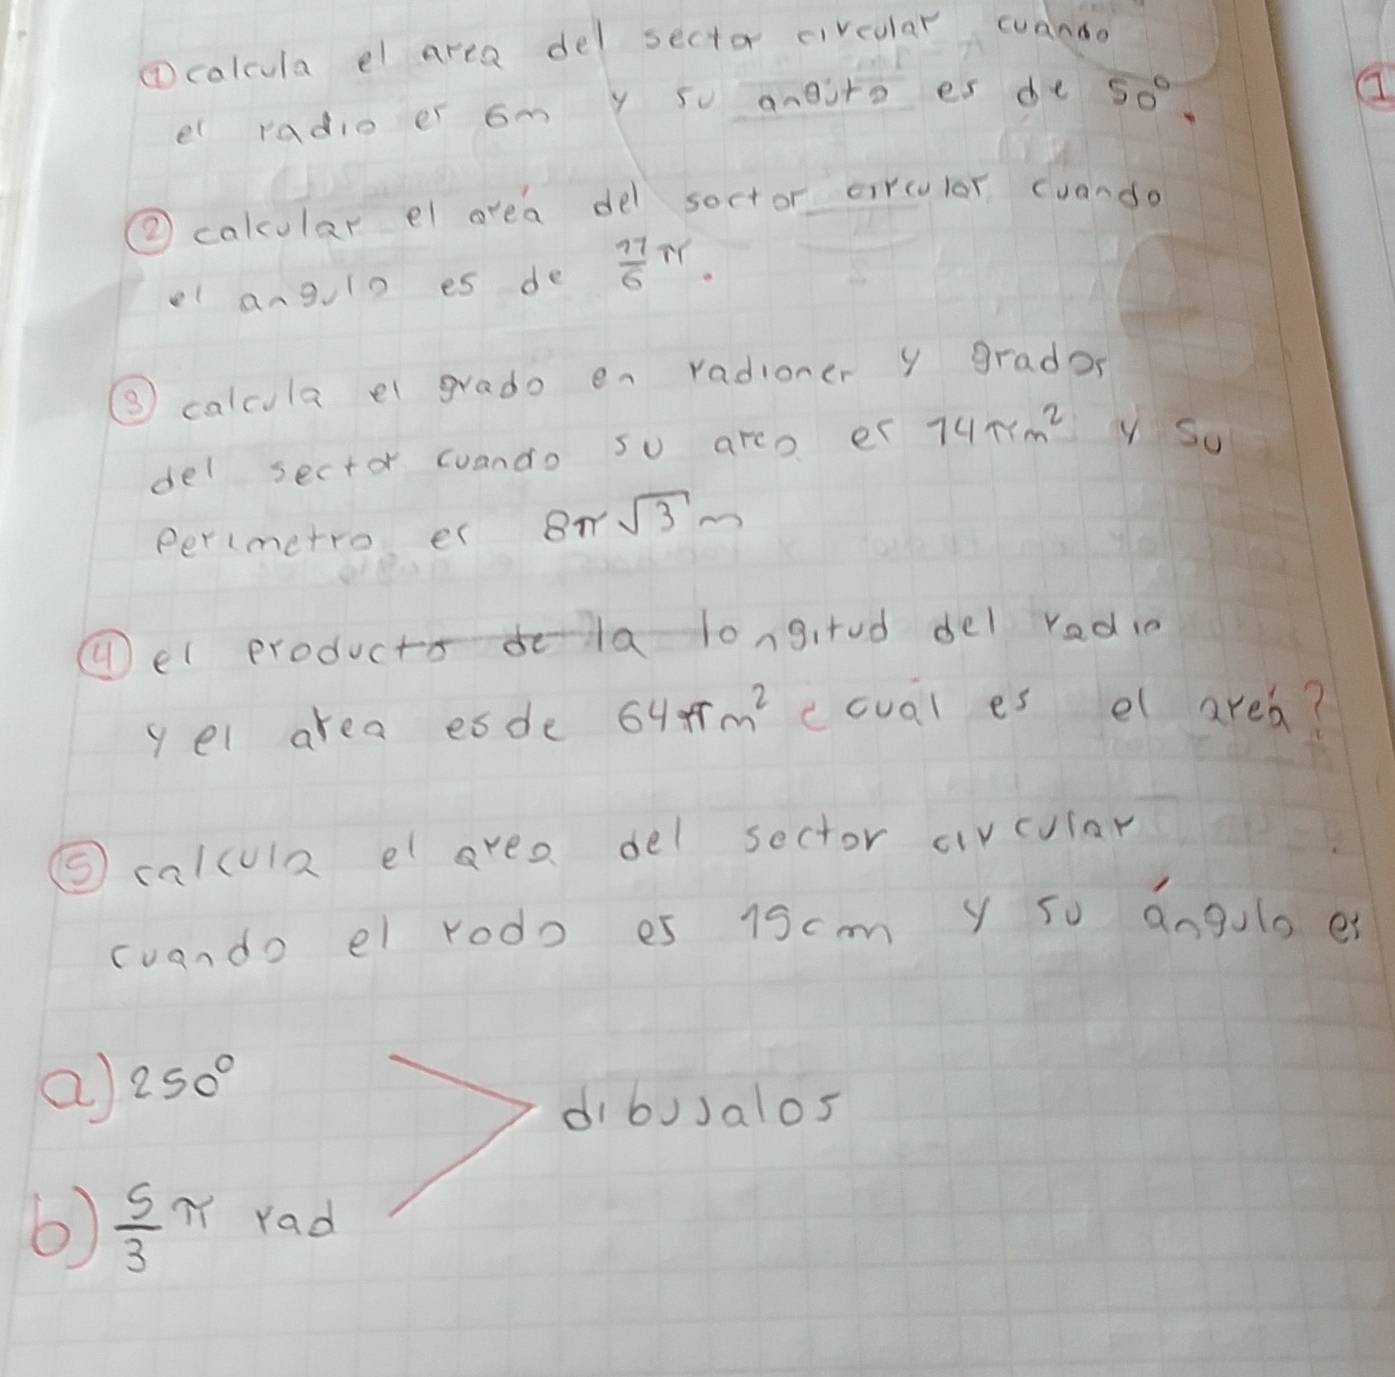 ① calcula el area del sector circular cuando
el radio es 6m y su angulo es de 50°.
② calcular el areá del sector circular cuando
el angulo es de 11/6 π.
③ calcula el grado en radiones y grados
del sector cuando su area es 14πm² y su
Perimetro es 8π√3 m
④ el producto de la longitud del radio
y el area es de 64πm² ¿ cuál es el areá?
⑤ calcula el area del sector circular
cuando el rado es 15cm y su ángulo es
a) 250°
dibujalos
b) 5/3 π rad
①